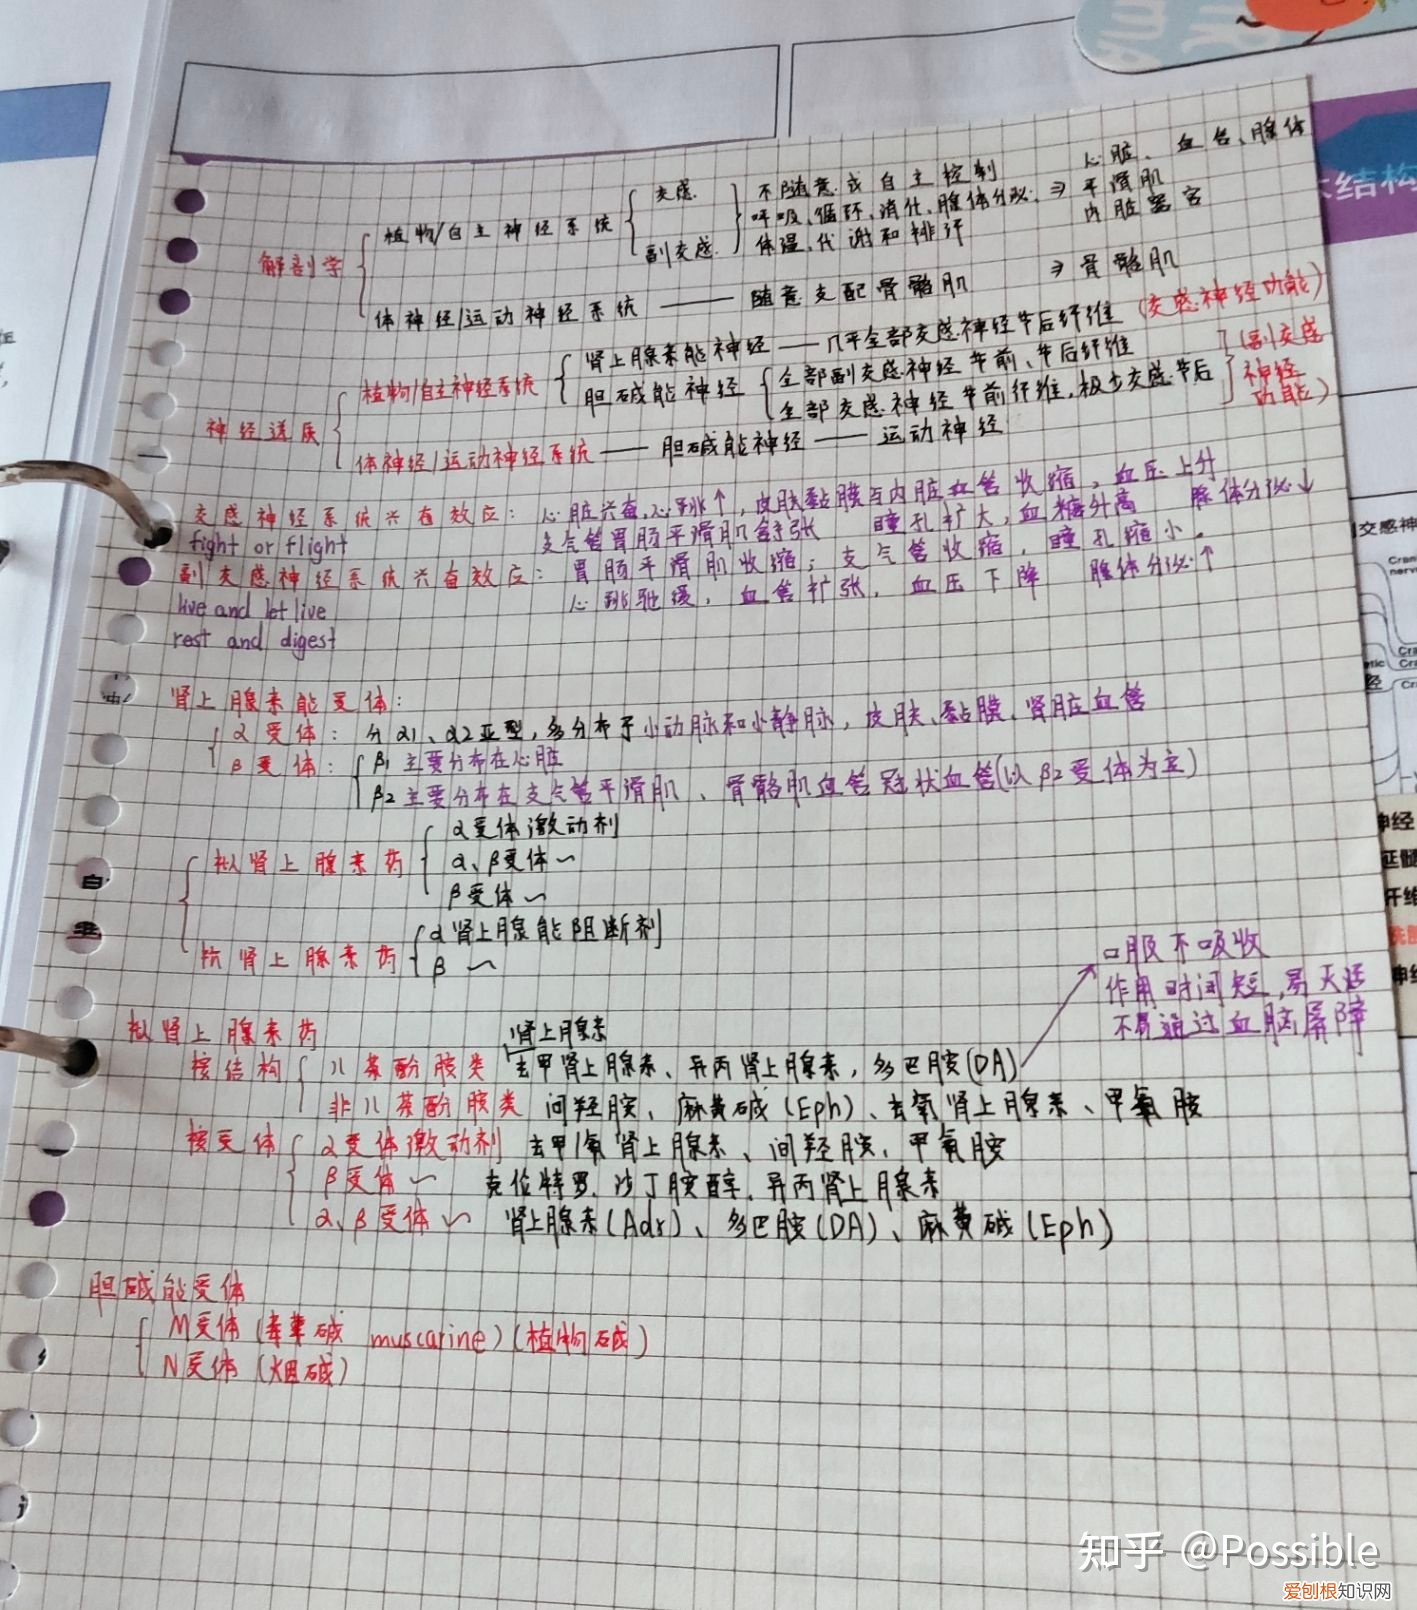 大结构
心脏、血管、腺体
交感 不随意或自主控制 ⇒ 平滑肌
植物/自主神经系统 呼吸、循环、消化、腺体分泌、 内脏器官
副交感 体温、代谢和排汗
解剖学
体神经/运动神经系统 —— 随意支配骨骼肌 ⇒ 骨骼肌
肾上腺素能神经 —— 几乎全部交感神经节后纤维 (交感神经功能)
植物/自主神经系统 胆碱能神经 全部副交感神经节前、节后纤维 (副交感
全部交感神经节前纤维,极少交感节后 神经
功能)
神经递质
体神经/运动神经系统 —— 胆碱能神经 —— 运动神经
交感神经系统兴奋效应: 心脏兴奋,心跳↑,皮肤黏膜与内脏血管收缩,血压上升
fight or flight 支气管胃肠平滑肌舒张 瞳孔扩大,血糖升高 腺体分泌↓
副交感神经系统兴奋效应: 胃肠平滑肌收缩;支气管收缩,瞳孔缩小,
live and let live 心跳驰缓,血管扩张,血压下降 腺体分泌↑
rest and digest
肾上腺素能受体:
α受体: 分α1、α2亚型,多分布于小动脉和小静脉,皮肤、黏膜、肾脏血管
β受体: β1 主要分布在心脏
β2 主要分布在支气管平滑肌、骨骼肌血管冠状血管(以β2受体为主)
α受体激动剂
拟肾上腺素药 α、β受体~
β受体~
α肾上腺能阻断剂
抗肾上腺素药 β ~
口服不吸收
作用时间短,易灭活
不易通过血脑屏障
拟肾上腺素药
肾上腺素
按结构 儿茶酚胺类 去甲肾上腺素、异丙肾上腺素,多巴胺(DA)
非儿茶酚胺类 间羟胺、麻黄碱(Eph)、去氧肾上腺素、甲氧胺
按受体 α受体激动剂 去甲/氧肾上腺素、间羟胺,甲氧胺
β受体~ 克伦特罗、沙丁胺醇、异丙肾上腺素
α、β受体~ 肾上腺素(Adr)、多巴胺(DA)、麻黄碱(Eph)
胆碱能受体
M受体(毒蕈碱 muscarine)(植物碱)
N受体(烟碱)
交感神
Cran
nerv
神经
知乎 @Possible
爱刨根知识网